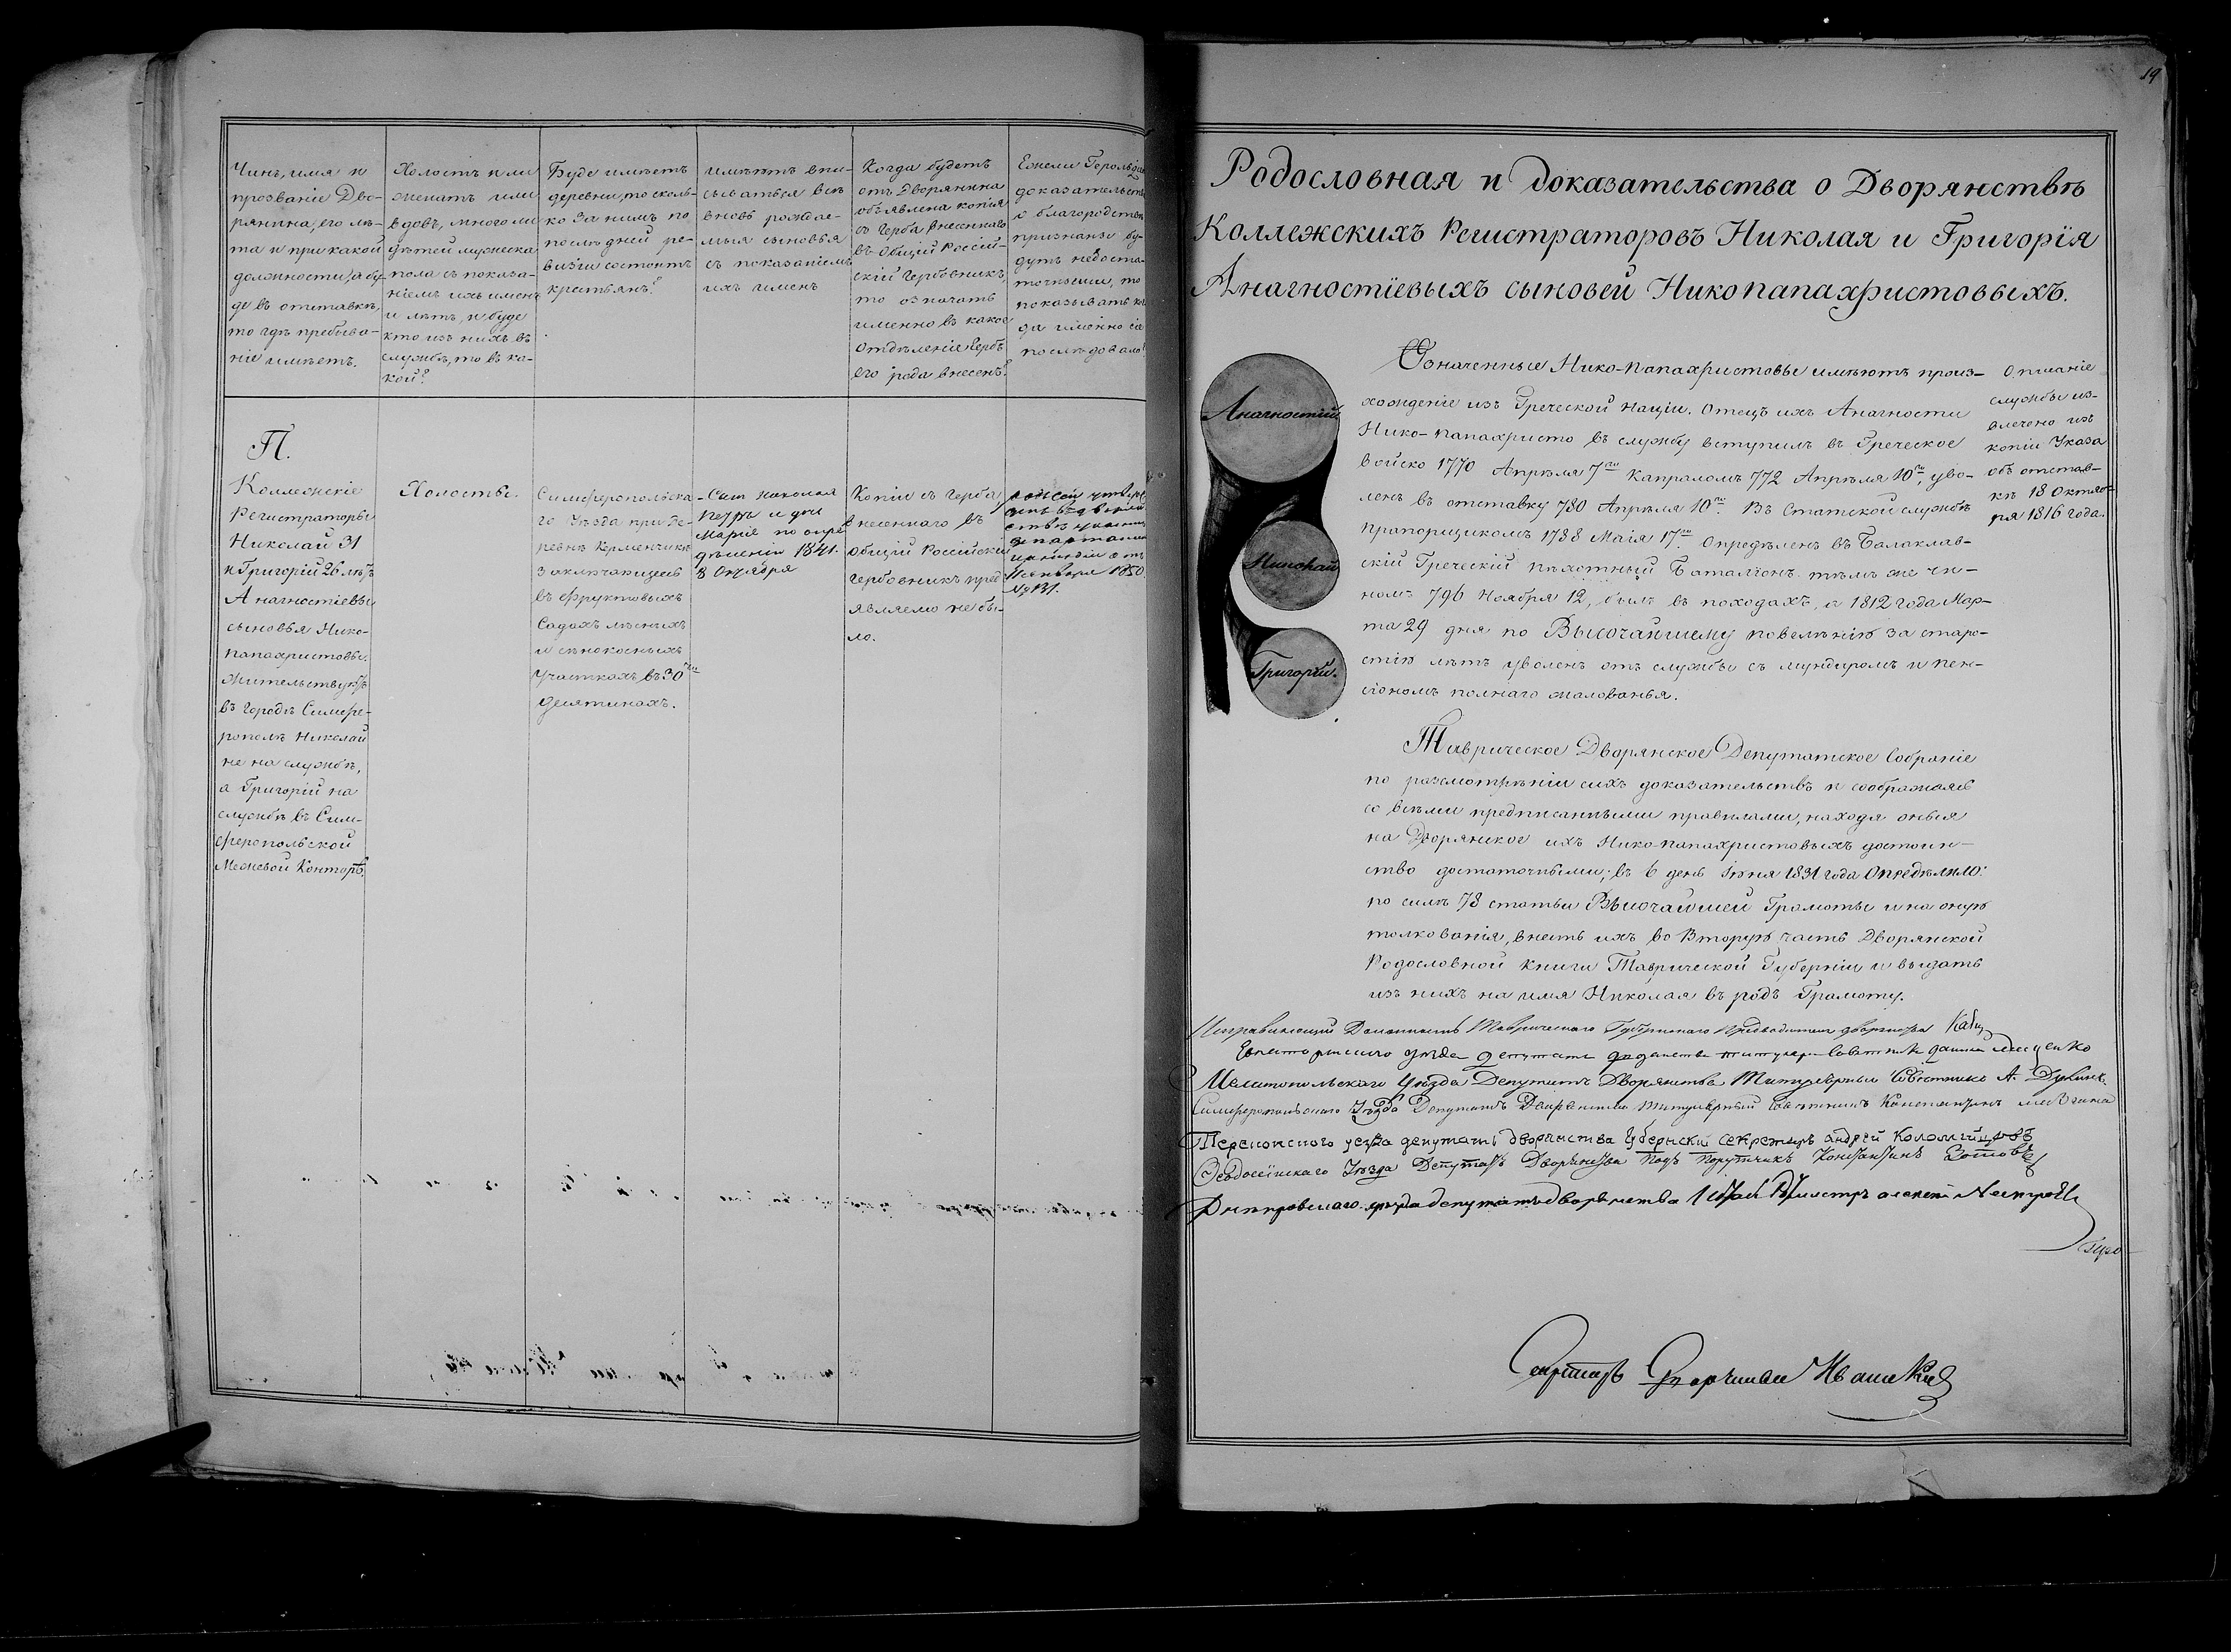 Чинъ, имя и
прозваніе Дво-
рянина, его лѣ-
та и при какой
должности, а бу-
де въ отставкѣ,
то гдѣ пребыва-
ніе имѣетъ.
Холостъ или
женатъ или
вдовъ, много ли
дѣтей мужеска
пола съ показа-
ніемъ ихъ именъ
и лѣтъ, и буде
кто изъ нихъ въ
службѣ, то въ ка-
кой?
Буде имѣетъ
деревни, то сколь-
ко за нимъ по
послѣдней ре-
визіи состоитъ
крестьянъ?
имѣютъ впи-
сываться всѣ
вновь рождае-
мыя сыновья
съ показаніемъ
ихъ именъ
Когда будетъ
отъ Дворянина
объявлена копія
съ герба внесеннаго
въ Общій Россій-
скій Гербовникъ,
то означать
именно въ какое
Отдѣленіе Гербъ
его рода внесенъ?
Ежели Герольдіею
доказательства
о благородствѣ
признаны бу-
дутъ недоста-
точными, то
показывать ко-
да именно сіе
послѣдовало?
П.
Коллежскіе
Регистраторы
Николай 31
и Григорій 26 лѣтъ
Анагностіевы
сыновья Нико-
папахристовы.
Жительствуютъ
въ городѣ Симфе-
рополѣ Николай
не на службѣ,
а Григорій на
службѣ въ Сим-
феропольской
Межевой Конторѣ.
Холосты.
Симферопольска-
го Уѣзда при де-
ревнѣ Керменчикѣ
заключающееся
въ фруктовыхъ
Садахъ лѣсныхъ
и сѣнокосныхъ
участкахъ въ 30ти
десятинахъ.
Сын Николая
Петръ и дочь
Марія по опре-
дѣленію 1841.
8 Октября
Копіи съ герба,
внесеннаго въ
Общій Россійскій
гербовникъ пред-
являемо не бы-
ло.
1850
№ 131.
19
Родословная и доказательства о Дворянствѣ
Коллежскихъ Регистраторовъ Николая и Григорія
Анагностіевыхъ сыновей Никопапахристовыхъ.
Анагностій
Николай
Григорій.
Означенные Нико-папахристовы имѣютъ произ-
хожденіе изъ Греческой націи. Отецъ ихъ Анагности
Нико-папахристо въ службу вступилъ въ Греческое
войско 1770 Апрѣля 7го Капраломъ 772 Апрѣля 10го, уво-
ленъ въ отставку 780 Апрѣля 10го. Въ Статской службѣ
прапорщикомъ 1788 Маія 17го. Опредѣленъ въ Балаклав-
скій Греческій пѣхотный Баталіонъ тѣмъ же чи-
номъ 796 Ноября 12, былъ въ походахъ, а 1812 года Мар-
та 29 дня по Высочайшему повелѣнію за старо-
стію лѣтъ уволенъ отъ службы съ мундиромъ и пен-
сіономъ полнаго жалованья.
Описаніе
службы из-
влечено изъ
копіи Указа
объ отстав-
кѣ 18 Октяб-
ря 1816 года.
Таврическое Дворянское Депутатское Собраніе
по разсмотрѣніи сихъ доказательствъ и соображаясь
со всѣми предписанными правилами, находя оныя
на Дворянское ихъ Нико-папахристовыхъ достоин-
ство достаточными; въ 6 день Іюня 1831 года Опредѣлило:
по силѣ 78 статьи Высочайшей Грамоты и на оную
толкованія, внесть ихъ во Вторую часть Дворянской
Родословной книги Таврической Губерніи и выдать
изъ нихъ на имя Николая въ родъ Грамоту.
Исправляющій Должность Таврическаго Губернскаго Предводителя дворянства
уѣзда Депутатъ дворянства титулярный Совѣтникъ
Мелитопольскаго Уѣзда Депутатъ Дворянства Титулярный Совѣтникъ А.
Симферопольскаго Уѣзда Депутатъ Дворянства титулярный Совѣтникъ Константинъ
Перекопского уезда депутатъ дворянства Губернский секретарь андрей Коломийцовъ
Ѳеодосійскаго Уѣзда Депутатъ Дворянства Подъ Порутчикъ Константинъ Зотовъ
Днѣпровскаго уѣзда депутатъ дворянства
Секретарь Дворянства Ивашкин